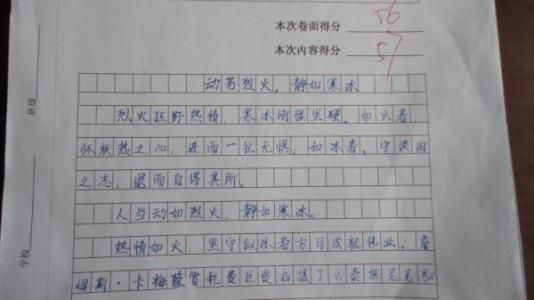 本次卷面得分 56
本次内容得分 57
班级
学校
动若烈火，静如寒冰
烈火狂野热情，寒冰刚强坚硬。如火者，
怀炽热之心，进而一往无惧，如冰者，守淡泊
之志，退而自得其所。
人当动如烈火，静如寒冰。
热情如火，坚守似冰者方可成就伟业。詹
姆斯·卡梅隆曾耗费巨资拍摄了《泰坦尼克号